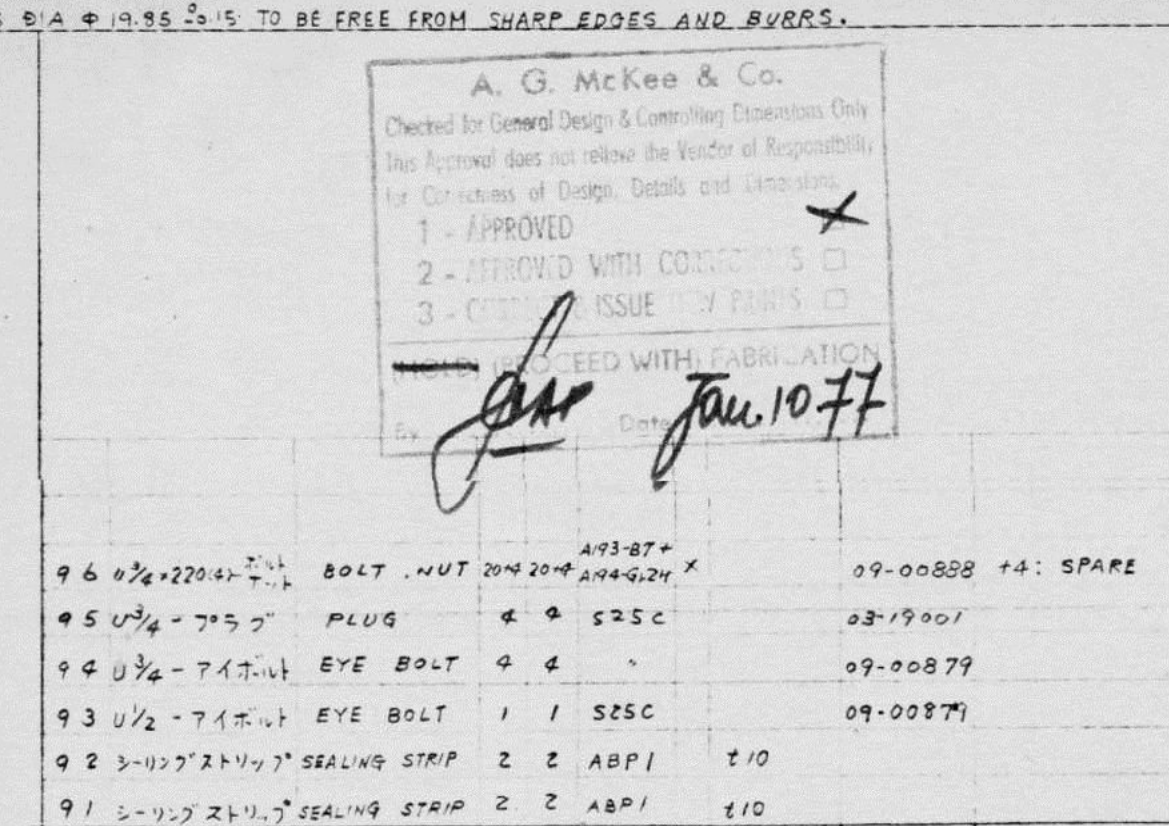 DIA Φ 19.85 -0.15 TO BE FREE FROM SHARP EDGES AND BURRS.
A. G. McKee & Co.
Checked for General Design & Controlling Dimensions Only
This Approval does not relieve the Vendor of Responsibility
for Correctness of Design, Details and Dimensions.
1 - APPROVED
2 - APPROVED WITH CORRECTIONS
3 - ISSUE PRINTS
(HOLD) (PROCEED WITH) FABRICATION
By Date Jan. 10 77
96 U3/4×220(4)- ボルト ナット BOLT . NUT 20+4 20+4 A193-B7 + A194-Gr2H × 09-00888 +4: SPARE
95 U3/4 - プラグ PLUG 4 4 S25C 03-19001
94 U3/4 - アイボルト EYE BOLT 4 4 〃 09-00879
93 U1/2 - アイボルト EYE BOLT 1 1 S25C 09-00879
92 シーリングストリップ SEALING STRIP 2 2 ABP1 t10
91 シーリングストリップ SEALING STRIP 2 2 ABP1 t10